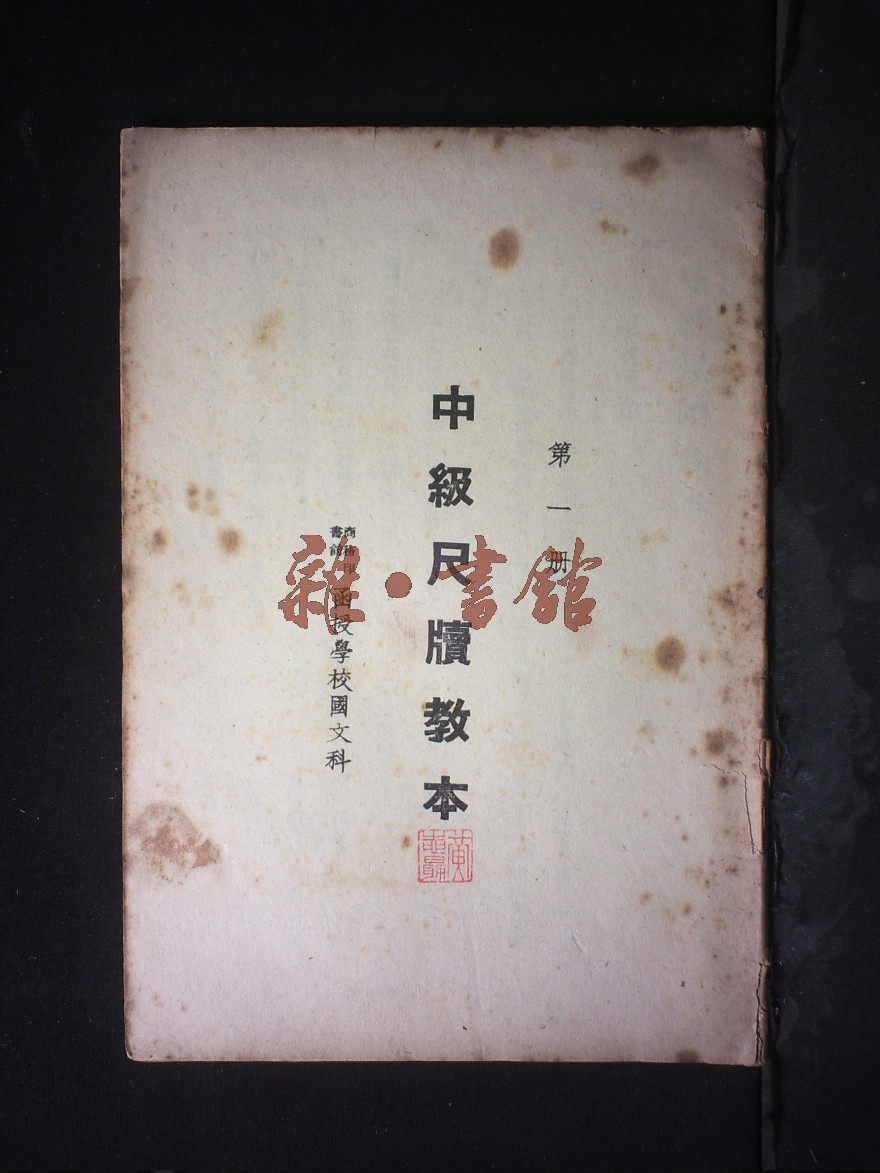 第一册
中級尺牘教本
商務印書館
函授學校國文科
雜·書館